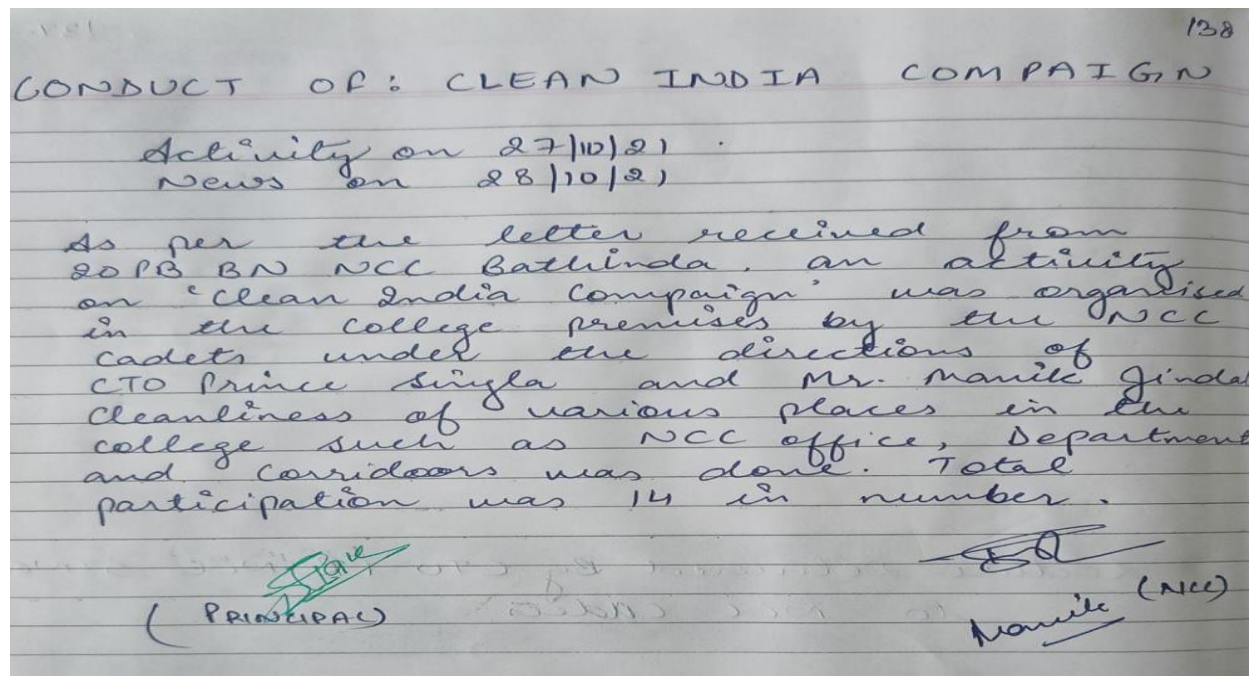 138
CONDUCT OF: CLEAN INDIA COMPAIGN
Activity on 27/10/21.
News on 28/10/21
As per the letter received from
20 PB BN NCC Bathinda, an activity
on 'Clean India Compaign' was organised
in the college premises by the NCC
cadets under the directions of
CTO Prince Singla and Mr. Manik Jindal
Cleanliness of various places in the
college such as NCC office, Department
and corridoors was done. Total
participation was 14 in number.
(PRINCIPAL)
(NCC)
Manik